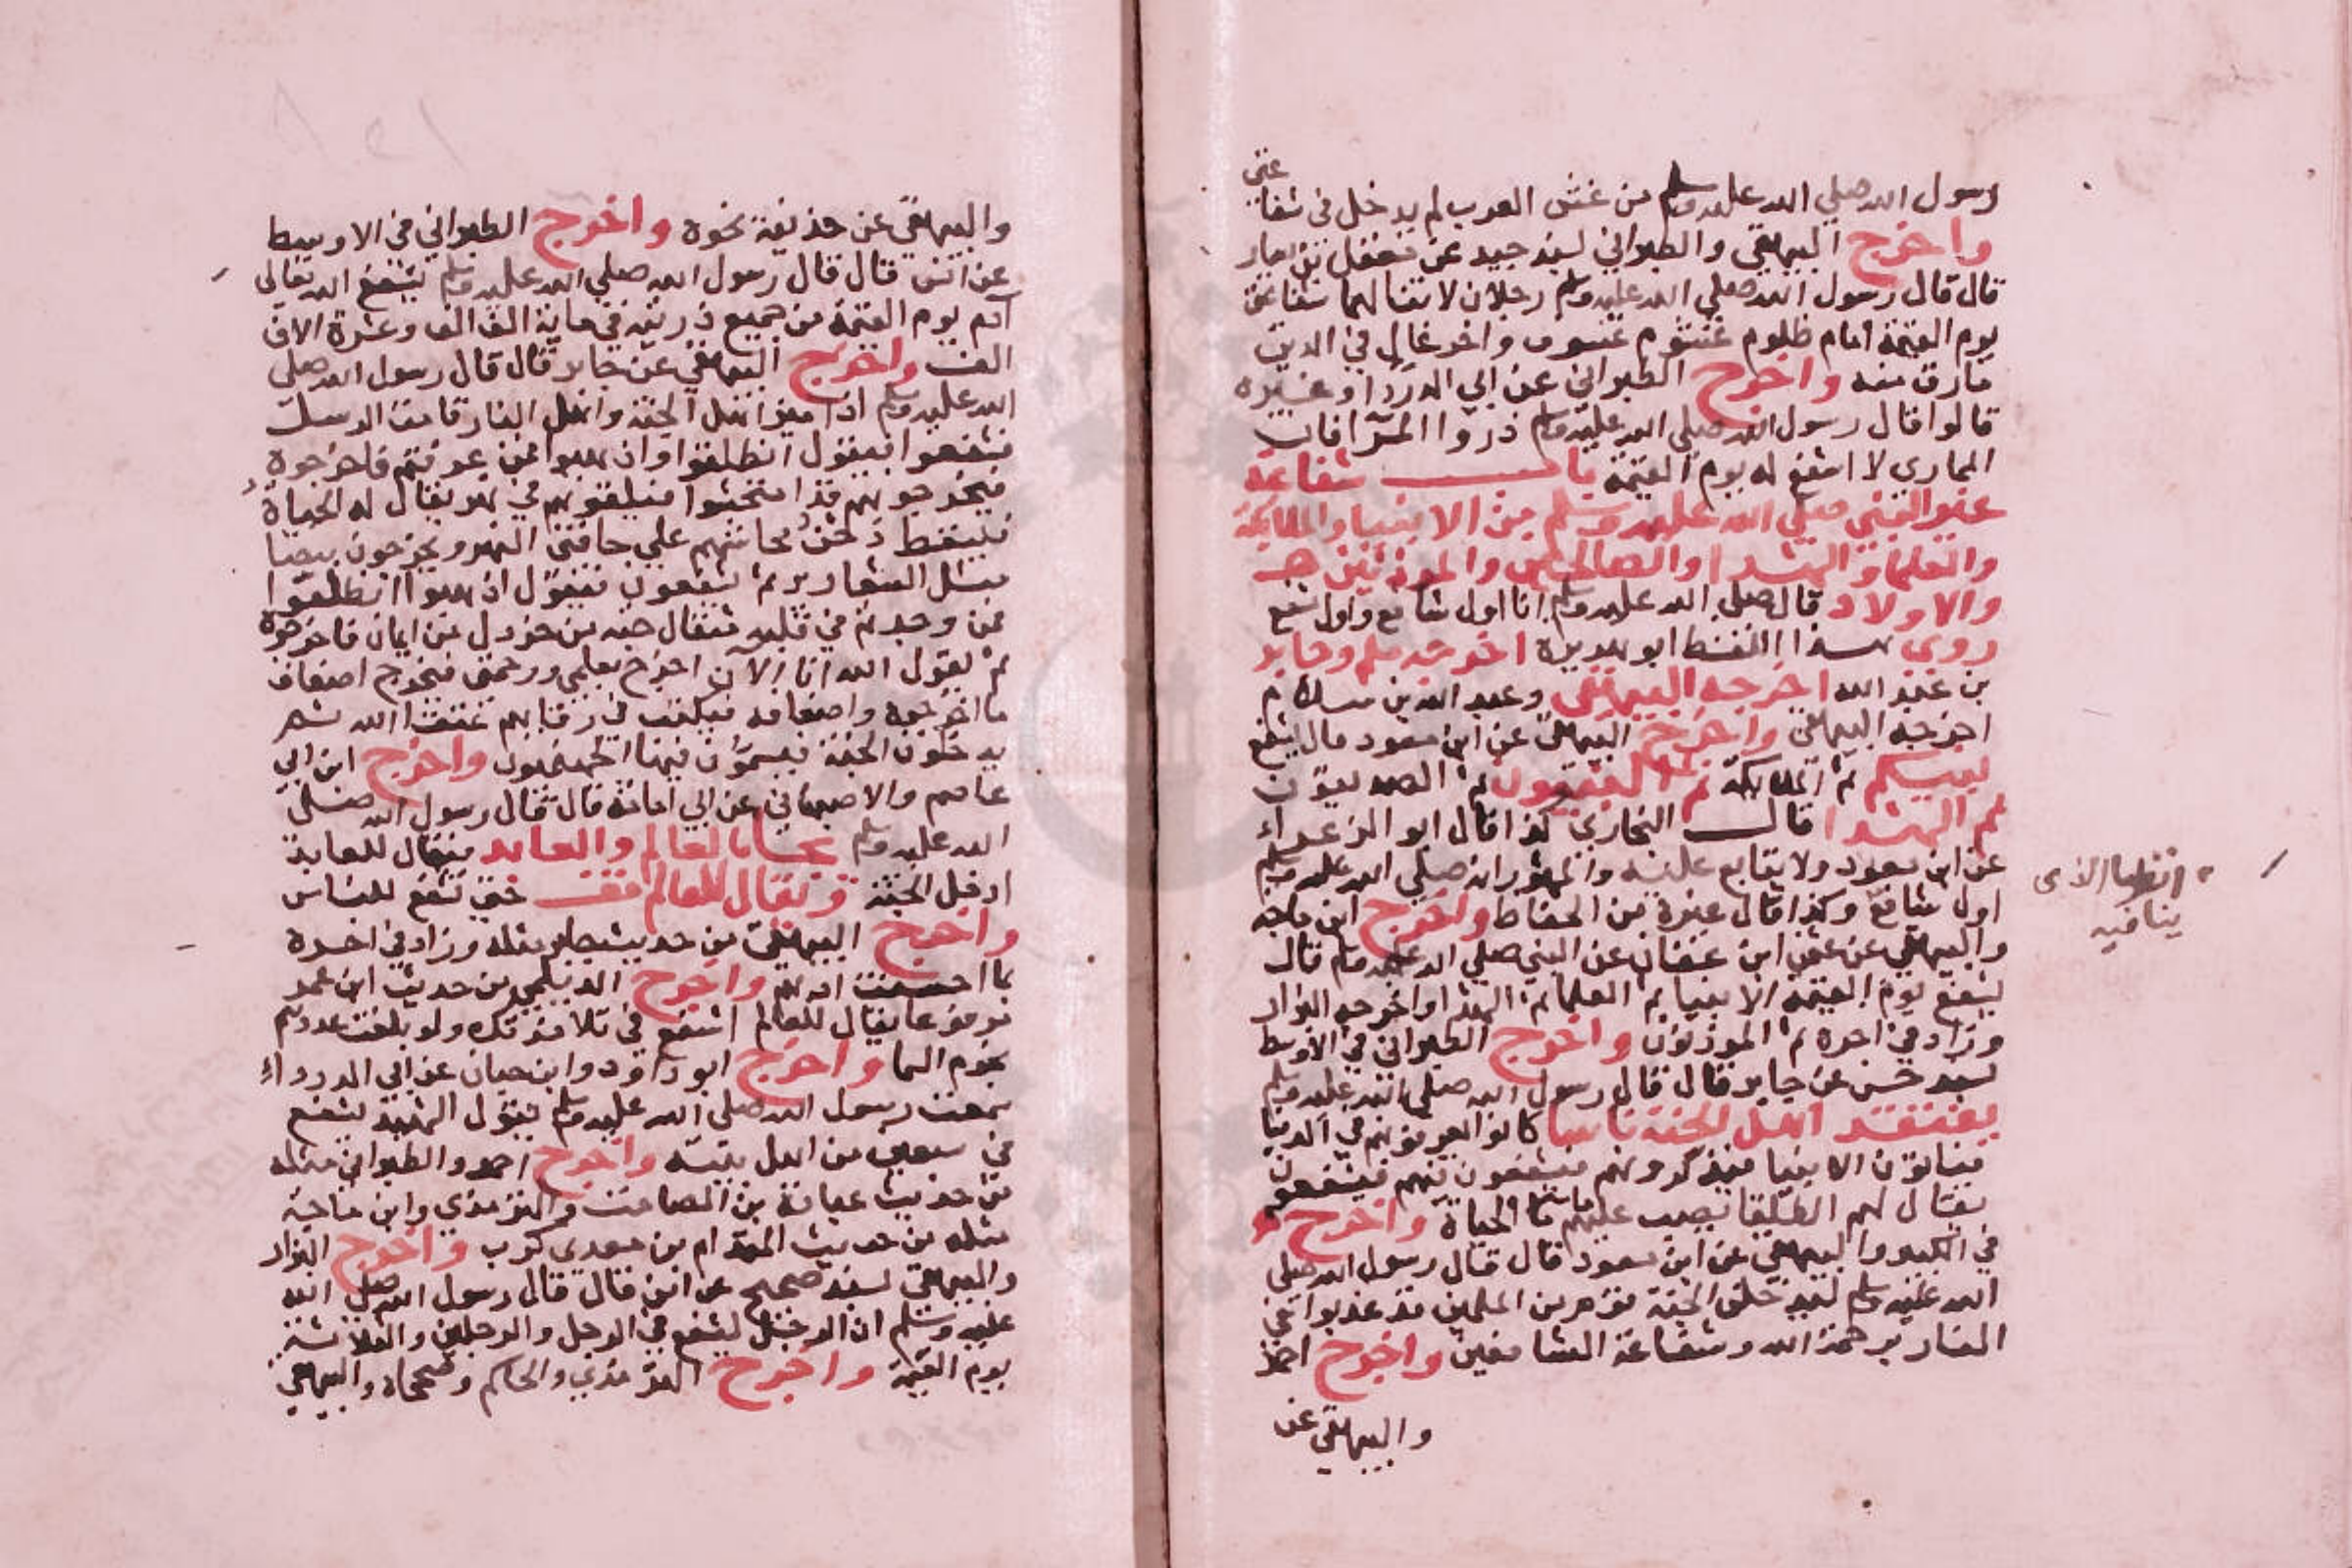 رسول الله صلي الله عليه وسلم من غش العرب لم يدخل في شفا
عتي
واخرج البيهقي والطبراني بسند جيد عن معقل بن يسار
قال قال رسول الله صلي الله عليه وسلم رجلان لا تنالهما شفاعتي
يوم القيمة امام ظلوم غشوم عسوف واخر غال في الدين
مارق منه واخرج الطبراني عن ابي الدردا وغيره
قالوا قال رسول الله صلي الله عليه وسلم ذروا المرا فان
المماري لا اشفع له يوم القيمة باب شفاعة
غير النبي صلي الله عليه وسلم من الانبيا والملائكة
والعلما والشهدا والصالحين والموذنين
والاولاد قال صلي الله عليه وسلم انا اول شافع واول شفع
روي بهذا اللفظ ابو هريرة اخرجه مسلم وجابر
بن عبد الله اخرجه البيهقي وعبد الله بن سلام
اخرجه البيهقي واخرج البيهقي عن ابن مسعود قال يشفع
نبيكم ثم الملايكة ثم النبيون ثم الصديقون
ثم الشهدا قال البخاري كذا قال ابو الزعراء
عن ابن مسعود ولا يتابع عليه والمشهور انه صلي الله عليه وسلم
اول شافع وكذا قال غيره من الحفاظ واخرج ابن ماجه
والبيهقي عن عثمن ابن عفان عن النبي صلي الله عليه وسلم قال
يشفع يوم القيمة الانبيا ثم العلما ثم الشهدا واخرجه البزار
وزاد في اخره ثم الموذنون واخرج الطبراني في الاوسط
بسند حسن عن جابر قال قال رسول الله صلي الله عليه وسلم
يفتقد اهل الجنة ناسا كانوا يعرفونهم في الدنيا
فياتون الانبيا فيذكرونهم فيشفعون فيهم فيشفعون
يقال لهم الطلقا يصب عليهم ما الحياة واخرج
في الكبير والبيهقي عن ابن مسعود قال قال رسول الله صلي
الله عليه وسلم ليدخلن الجنة قوم من المسلمين قد عذبوا في
النار برحمة الله وشفاعة الشافعين واخرج احمد
والبيهقي عن
انظر ما الذي
ينافيه
والبيهقي عن حذيفة نحوه واخرج الطبراني في الاوسط
عن انس قال قال رسول الله صلي الله عليه وسلم يشفع الله تعالي
آدم يوم القيمة من جميع ذريته في ماية الف الف وعشرة الاف
الف واخرج البيهقي عن جابر قال قال رسول الله صلي
الله عليه وسلم اذا ميز اهل الجنة واهل النار قامت الرسل
فشفعوا فيقول انطلقوا او اذهبوا فمن عرفتم فاخرجوه
فيخرجونهم قد امتحشوا فيلقونهم في نهر يقال له الحياة
فليسقط محاشهم علي حافتي النهر ويخرجون بيضا
مثل الثعارير ثم يشفعون فيقول اذهبوا انطلقوا
فمن وجدتم في قلبه مثقال حبة من خردل من ايمان فاخرجوه
ثم يقول الله انا الآن اخرج بعلمي ورحمتي فيخرج اضعاف
ما اخرجوه واضعافه فيكتب في رقابهم عتقا الله ثم
يدخلون الجنة فيسمون فيها الجهنميون واخرج ابن ابي
عاصم والاصبهاني عن ابي امامة قال قال رسول الله صلي
الله عليه وسلم يجا بالعالم والعابد فيقال للعابد
ادخل الجنة ويقال للعالم قف حتي تشفع للناس
واخرج البيهقي من حديث جابر مثله وزاد في اخره
بما احسنت ادبهم واخرج الديلمي من حديث ابن عمر
مرفوعا يقال للعالم اشفع في تلامذتك ولو بلغت عددهم
نجوم السما واخرج ابو داود وابن حبان عن ابي الدرداء
سمعت رسول الله صلي الله عليه وسلم يقول الشهيد يشفع
في سبعين من اهل بيته واخرج احمد والطبراني مثله
من حديث عبادة بن الصامت والترمذي وابن ماجة
مثله من حديث المقدام بن معدي كرب واخرج البزار
والبيهقي بسند صحيح عن انس قال قال رسول الله صلي الله
عليه وسلم ان الرجل ليشفع في الرجل والرجلين والثلاثة
يوم القيمة واخرج الترمذي والحاكم وصححاه والبيهقي